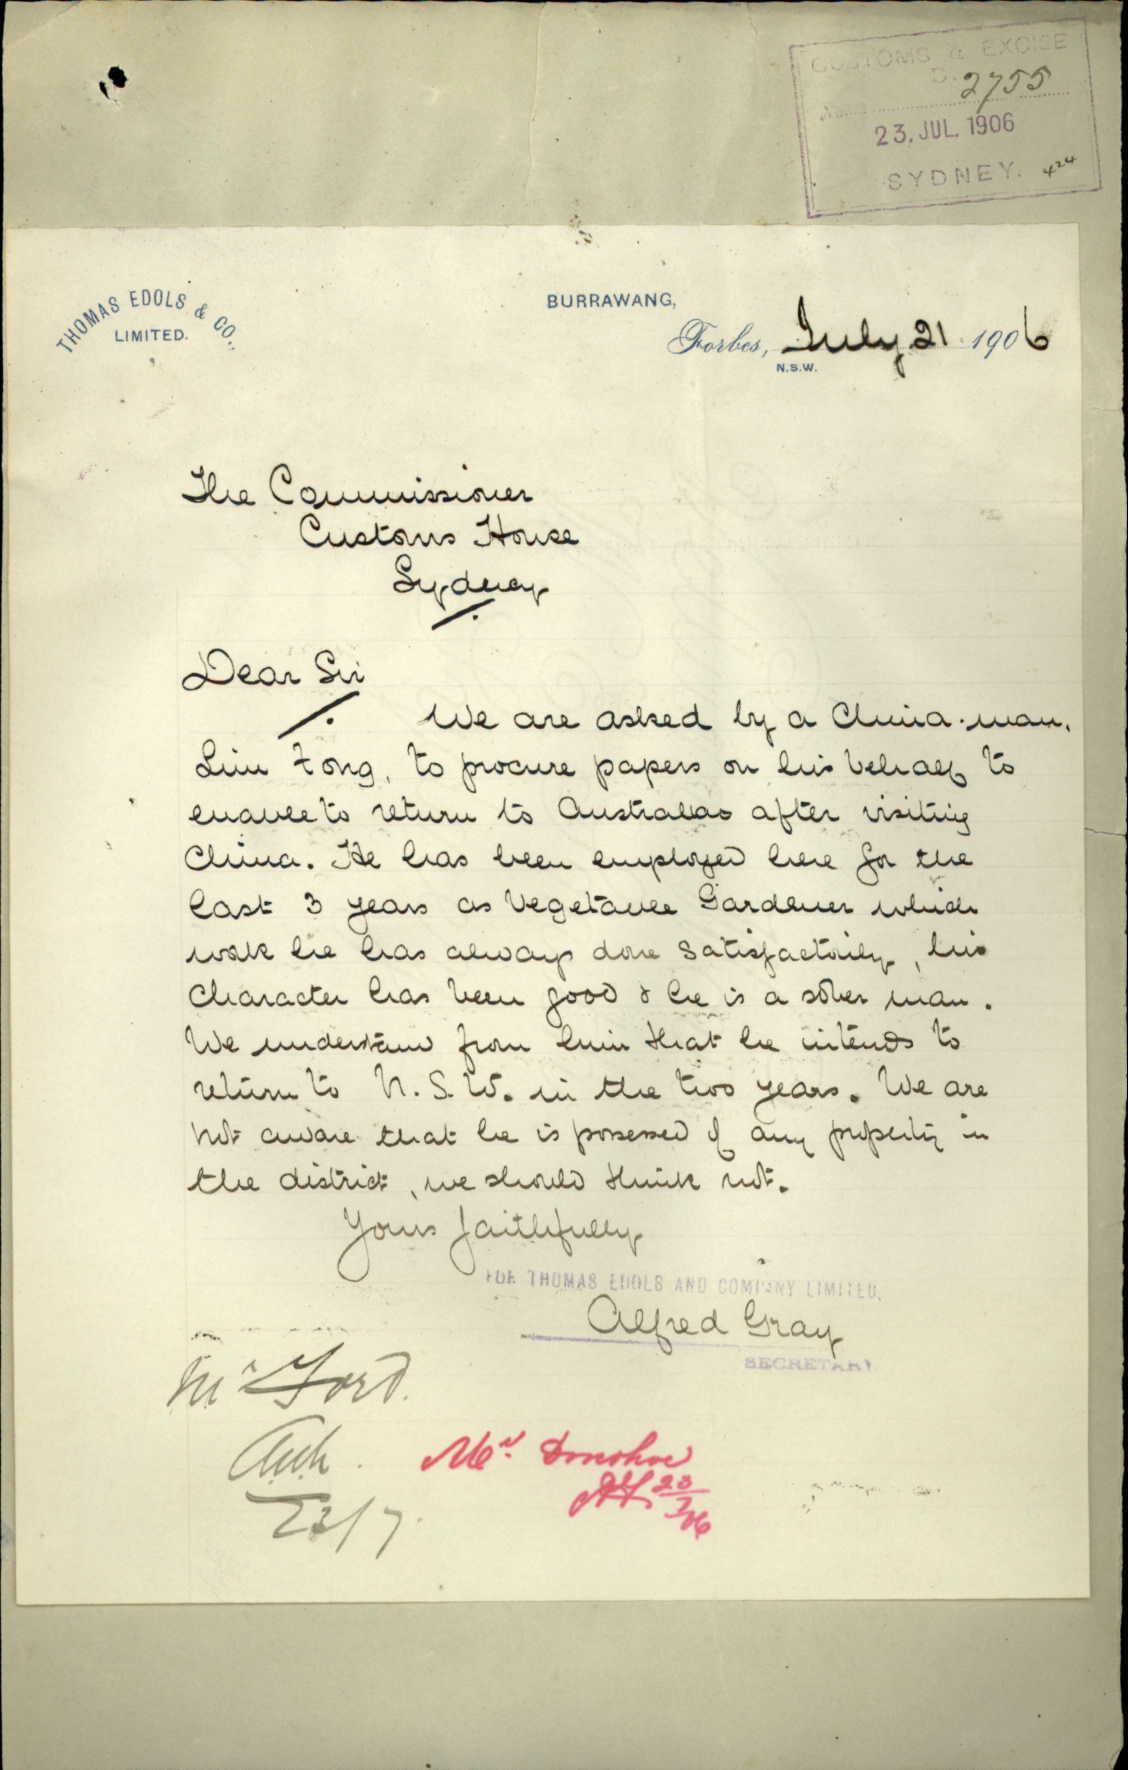 CUSTOMS & EXCISE
D. 2755
23. JUL. 1906
SYDNEY. 424
THOMAS EDOLS & CO.,
LIMITED.
BURRAWANG,
Forbes, July 21 1906
N.S.W.
The Commissioner
Customs House
Sydney
Dear Sir
We are asked by a China-man,
Lim Fong, to procure papers on his behalf to
enable to return to Australas after visiting
China. He has been employed here for the
last 3 years as Vegetable Gardener which
work he has always done satisfactorily, his
character has been good & he is a sober man.
We understand from him that he intends to
return to N.S.W. in the two years. We are
not aware that he is possessed of any property in
the district, we should think not.
Yours faithfully
FOR THOMAS EDOLS AND COMPANY LIMITED.
Alfred Gray
SECRETARY
Mr Ford.
23/7.
Mr. Donohoe
23/7/06